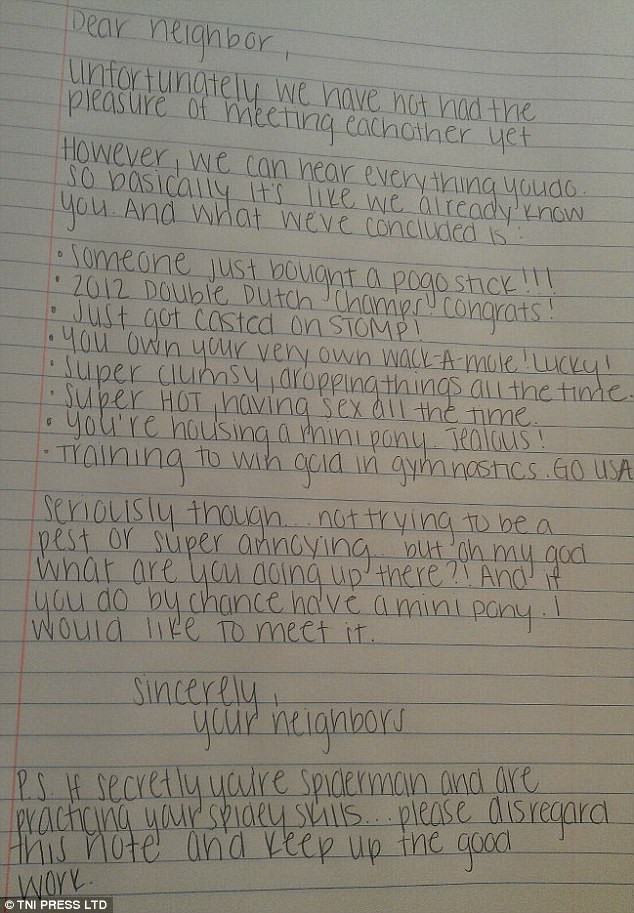 Dear neighbor,
Unfortunately we have not had the
pleasure of meeting eachother yet
However, we can hear everything you do.
So basically it's like we already know
you. And what we've concluded is:
• Someone just bought a pogo stick!!!
• 2012 Double Dutch Champs! Congrats!
• Just got casted on STOMP!
• You own your very own Wack-A-mole! Lucky!
• Super clumsy, dropping things all the time.
• Super HOT, having sex all the time.
• You're housing a mini pony. Jealous!
• Training to win gold in gymnastics. GO USA
Seriously though... not trying to be a
pest or super annoying... but oh my god
what are you doing up there?! And if
you do by chance have a mini pony. I
would like to meet it.
Sincerely,
your neighbors
P.S. If secretly you're spiderman and are
practicing your spidey skills... please disregard
this note and keep up the good
work.
© TNI PRESS LTD